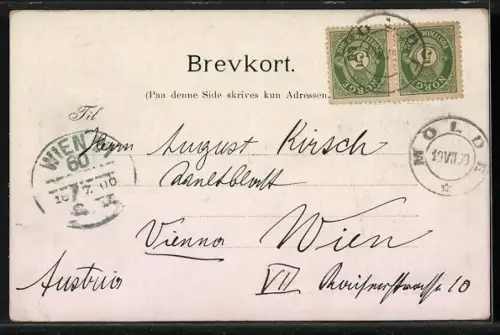 Brevkort.
(Paa denne Side skrives kun Adressen.
Til
Herrn August Kirsch
Vienna Wien
Austria VII Kaiserstrasse 10
NORGE 5
NORGE 5
MOLDE
19 VII 00
WIEN
60